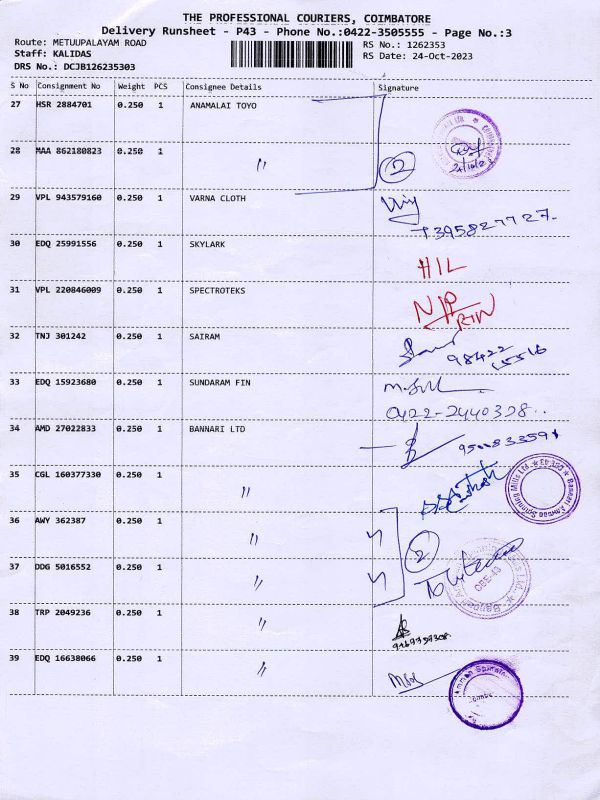 THE PROFESSIONAL COURIERS, COIMBATORE
Delivery Runsheet - P43 - Phone No.:0422-3505555 - Page No.:3
Route: METUUPALAYAM ROAD
RS No.: 1262353
Staff: KALIDAS
RS Date: 24-Oct-2023
DRS No.: DCJB126235303
S No Consignment No Weight PCS Consignee Details Signature
27 HSR 2884701 0.250 1 ANAMALAI TOYO
28 MAA 862180823 0.250 1 〃 2
29 VPL 943579160 0.250 1 VARNA CLOTH
30 EDQ 25991556 0.250 1 SKYLARK HIL
31 VPL 220846009 0.250 1 SPECTROTEKS N/P
32 TNJ 301242 0.250 1 SAIRAM 98422
15516
33 EDQ 15923680 0.250 1 SUNDARAM FIN
0422-2440328..
34 AMD 27022833 0.250 1 BANNARI LTD
35 CGL 160377330 0.250 1 〃 Bannari Amman Spinning Mills Ltd.
36 AWY 362387 0.250 1 〃 〃 2
37 DDG 5016552 0.250 1 〃 〃
38 TRP 2049236 0.250 1 〃
39 EDQ 16638066 0.250 1 〃